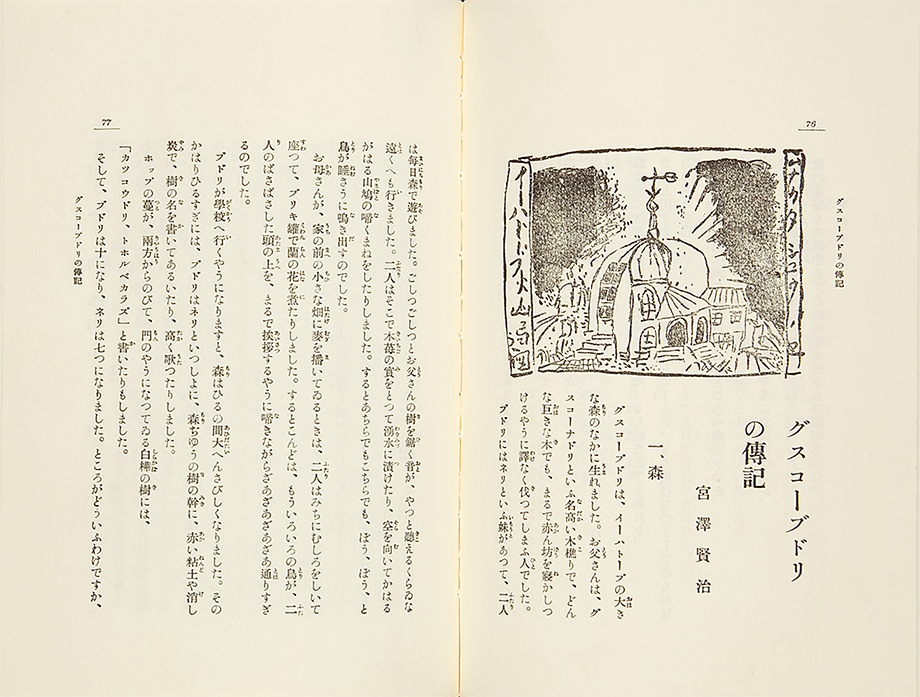 76
グスコーブドリの傳記
イーハトーブ火山局図
グスコーブドリ
の傳記
宮澤賢治
一、森
グスコーブドリは、イーハトーブの大き
な森のなかに生れました。お父さんは、グ
スコーナドリといふ名高い木樵りで、どん
な巨きな木でも、まるで赤ん坊を寝かしつ
けるやうに譯なく伐つてしまふ人でした。
ブドリにはネリといふ妹があつて、二人
は毎日森で遊びました。ごしつごしつとお父さんの樹を鋸く音が、やつと聽えるくらゐな
遠くへも行きました。二人はそこで木苺の實をとつて湧水に漬けたり、空を向いてかはる
がはる山鳩の啼くまねをしたりしました。するとあちらでもこちらでも、ぽう、ぽう、と
鳥が睡さうに鳴き出すのでした。
お母さんが、家の前の小さな畑に麥を播いてゐるときは、二人はみちにむしろをしいて
座つて、ブリキ罐で蘭の花を煮たりしました。するとこんどは、もういろいろの鳥が、二
人のぱさぱさした頭の上を、まるで挨拶するやうに啼きながらざあざあざあざあ通りすぎ
るのでした。
ブドリが學校へ行くやうになりますと、森はひるの間大へんさびしくなりました。その
かはりひるすぎには、ブドリはネリといつしよに、森ぢゆうの樹の幹に、赤い粘土や消し
炭で、樹の名を書いてあるいたり、高く歌つたりしました。
ホップの蔓が、兩方からのびて、門のやうになつてゐる白樺の樹には、
「カツコウドリ、トホルベカラズ」と書いたりもしました。
そして、ブドリは十になり、ネリは七つになりました。ところがどういふわけですか、
グスコーブドリの傳記
77